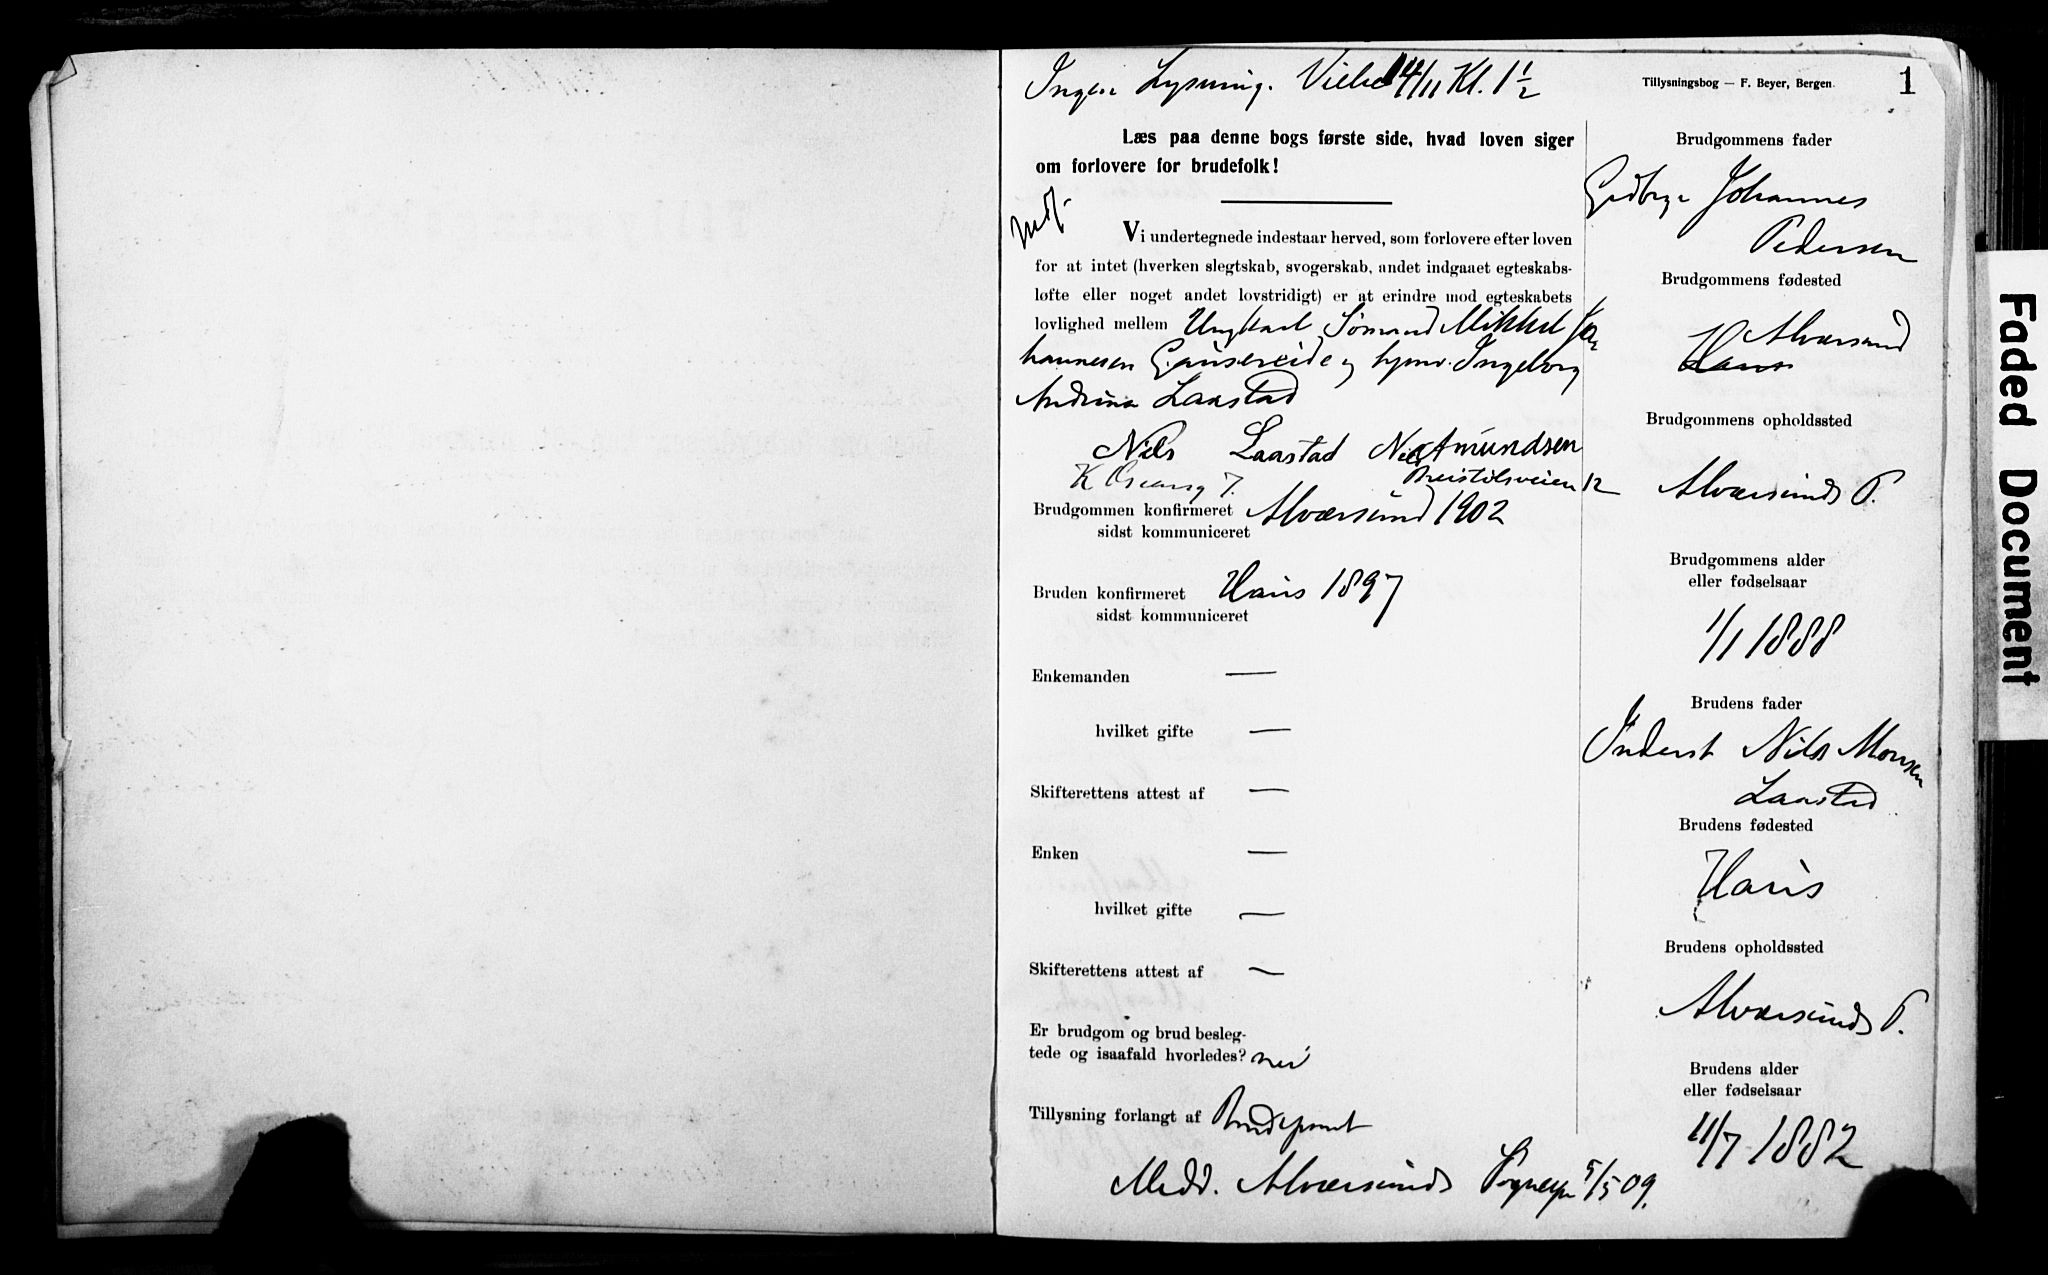 Ingen Lysning. Vielse 14/11 Kl. 1 1/2
Tillysningsbog — F. Beyer, Bergen.
1
Læs paa denne bogs første side, hvad loven siger
om forlovere for brudefolk!
indf.
Vi undertegnede indestaar herved, som forlovere efter loven
for at intet (hverken slegtskab, svogerskab, andet indgaaet egteskabs-
løfte eller noget andet lovstridigt) er at erindre mod egteskabets
lovlighed mellem Ungkarl Sømand Mikkel Jo-
hannesen Gaustereide og Ingeborg
Andrina Laastad
Nils Laastad Nils Amundsen
K 7. Preistölsveien 12
Brudgommen konfirmeret Alversund 1902
sidst kommuniceret
Bruden konfirmeret Haus 1897
sidst kommuniceret
Enkemanden —
hvilket gifte —
Skifterettens attest af —
Enken —
hvilket gifte —
Skifterettens attest af —
Er brudgom og brud besleg-
tede og isaafald hvorledes? nei
Tillysning forlangt af Brudgommen
Medd. Alversunds Sognepr 5/5 09.
Brudgommens fader
Grdbrgr Johannes
Pedersen
Brudgommens fødested
Alversund
Haus
Brudgommens opholdssted
Alversunds P.
Brudgommens alder
eller fødselsaar
1/1 1888
Brudens fader
Inderst Nils Monsen
Laastad
Brudens fødested
Haus
Brudens opholdssted
Alversunds P.
Brudens alder
eller fødselsaar
11/7 1882
Faded Document